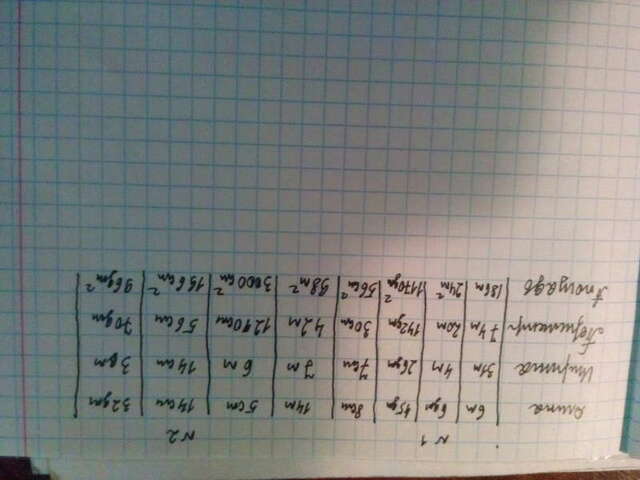 N1 N2
Длина | 6м | 6дм | 45дм | 8см | 14м | 5см | 14см | 32дм
Ширина | 31м | 4м | 26дм | 7см | 7м | 6м | 14см | 3дм
Периметр | 74м | 20м | 142дм | 30см | 42м | 1210см | 56см | 70дм
Площадь | 186м | 24м² | 1170дм² | 56см² | 98м² | 3000см² | 196см² | 96дм²